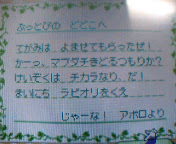 ぶっとびの どどこへ
てがみは よませてもらったぜ！
かーっ。マブダチきどるつもりか？
けいぞくは チカラなり、だ！
まいにち ラビオリをくえ
じゃーな！ アポロより